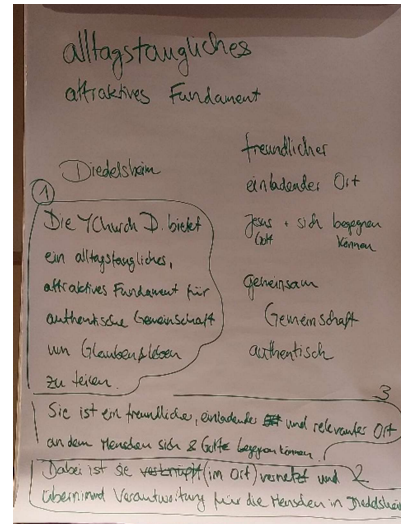 alltagstaugliches
attraktives Fundament
Diedelsheim
1
Die YChurch D. bietet
ein alltagstaugliches,
attraktives Fundament für
authentische Gemeinschaft
um Glauben & leben
zu teilen.
freundlicher
einladender Ort
Jesus + sich begegnen
Gott können
gemeinsam
Gemeinschaft
authentisch
3
Sie ist ein freundlicher, einladender und relevanter Ort
an dem Menschen sich & Gott begegnen können.
Dabei ist sie verknüpft (im Ort) vernetzt und 2
übernimmt Verantwortung für die Menschen in Diedelsheim